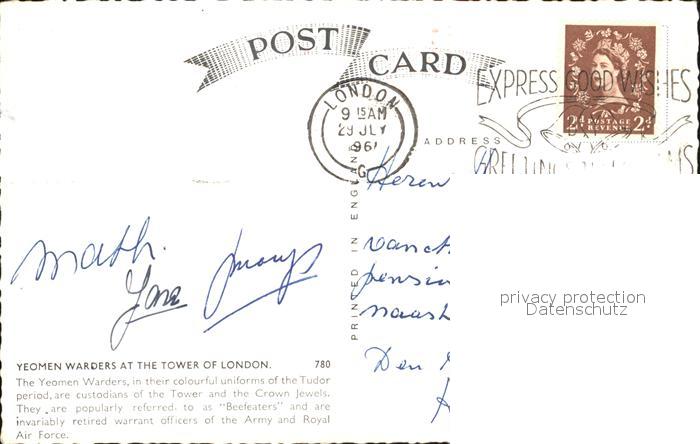 POST
CARD
LONDON
9 15AM
29 JLY
1961
G
EXPRESS GOOD WISHES
2D POSTAGE 2D
REVENUE
BY
GREETINGS TELEGRAMS
ADDRESS
PRINTED IN ENGLAND
Heren
pensio
naast
Den
Math.
privacy protection
Datenschutz
YEOMEN WARDERS AT THE TOWER OF LONDON. 780
The Yeomen Warders, in their colourful uniforms of the Tudor
period, are custodians of the Tower and the Crown Jewels.
They are popularly referred to as "Beefeaters" and are
invariably retired warrant officers of the Army and Royal
Air Force.